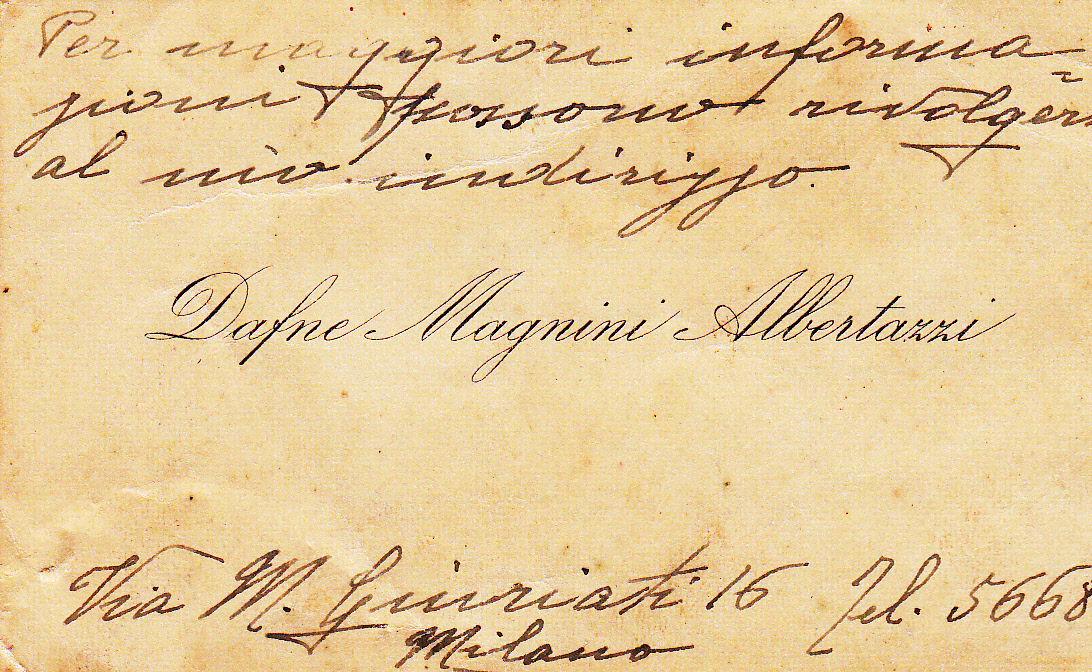 Per maggiori informa-
zioni possono rivolger
al mio indirizzo.
Dafne Magnini Albertazzi
Via M. Giuriati 16 Tel. 5668
Milano